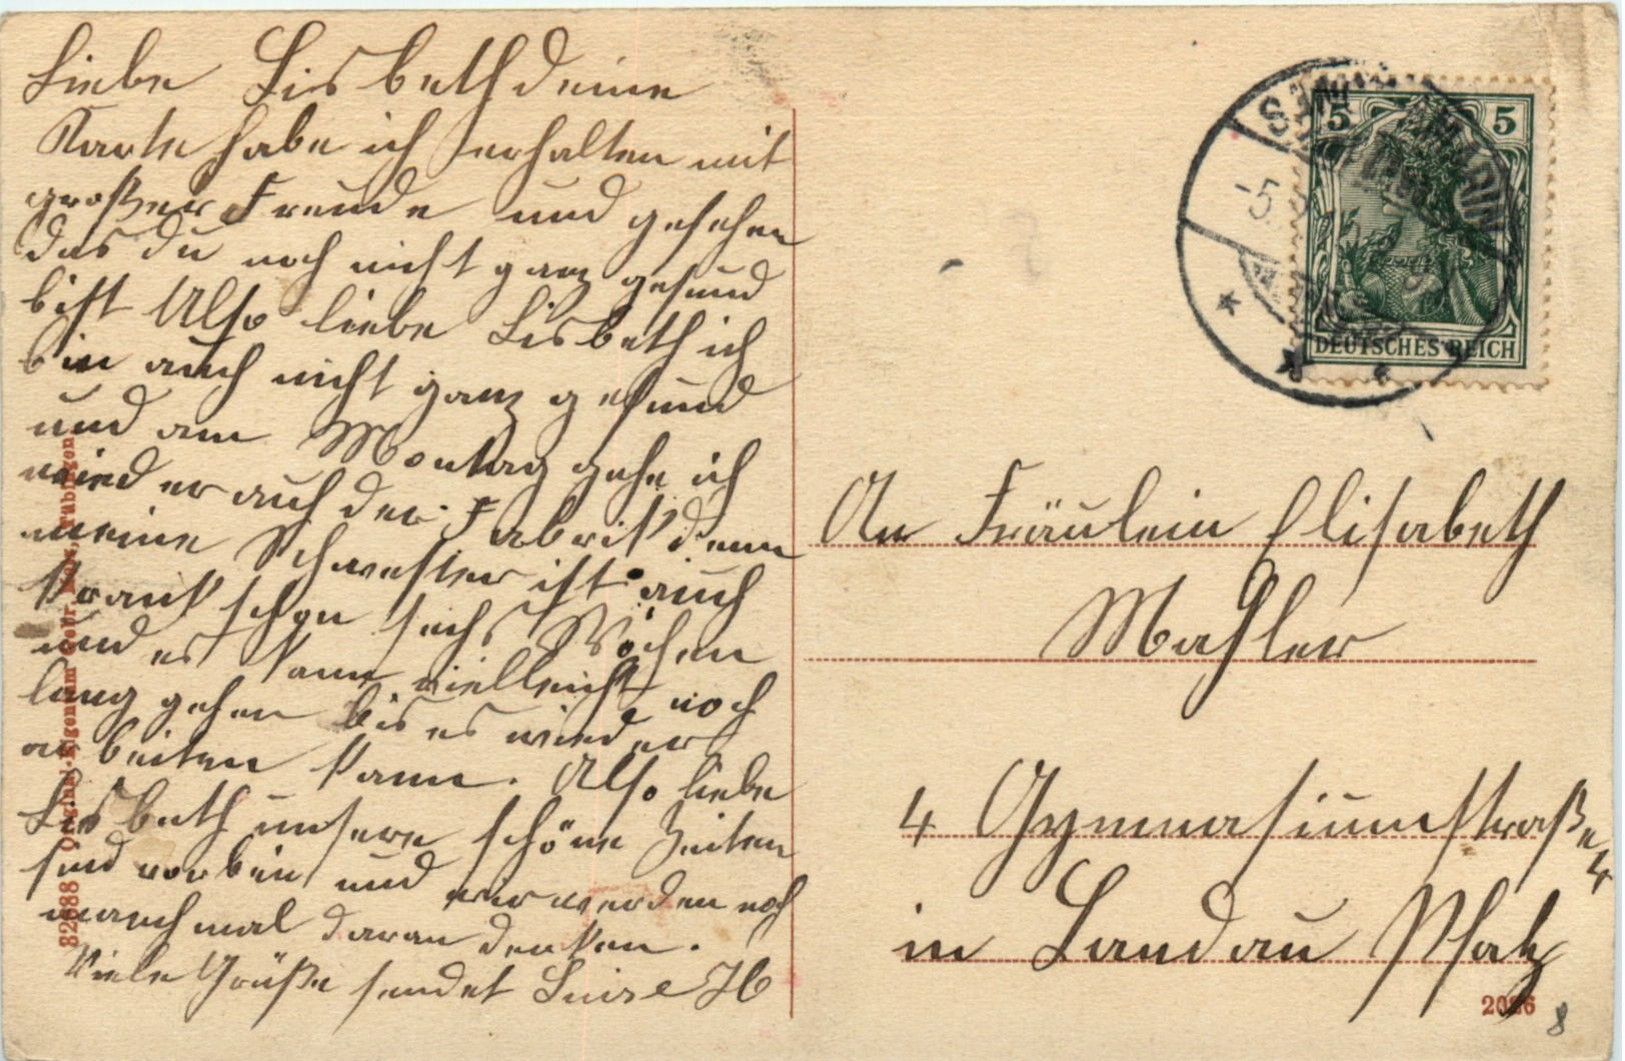 Liebe Lisbeth deine
Karte habe ich erhalten mit
großer Freude und gesehen
das du noch nicht ganz gesund
bist Also liebe Lisbeth ich
bin auch nicht ganz gesund
und am Montag gehe ich
wieder auch der Fabrik denn
meine Schwester ist auch
krank schon sechs Wochen
und es kann vielleicht noch
lang gehen bis es wieder
arbeiten kann. Also liebe
Lisbeth unsere schöne Zeiten
sind vorbei und wir werden noch
manch mal daran denken.
Viele Grüße sendet Luise H
82688 Original-Eigentum Gebr. Tübingen
5 5
DEUTSCHES REICH
An Fräulein Elisabeth
Mahler
4 Gymnasiumstraße 4
in Landau Pfalz
2086
8